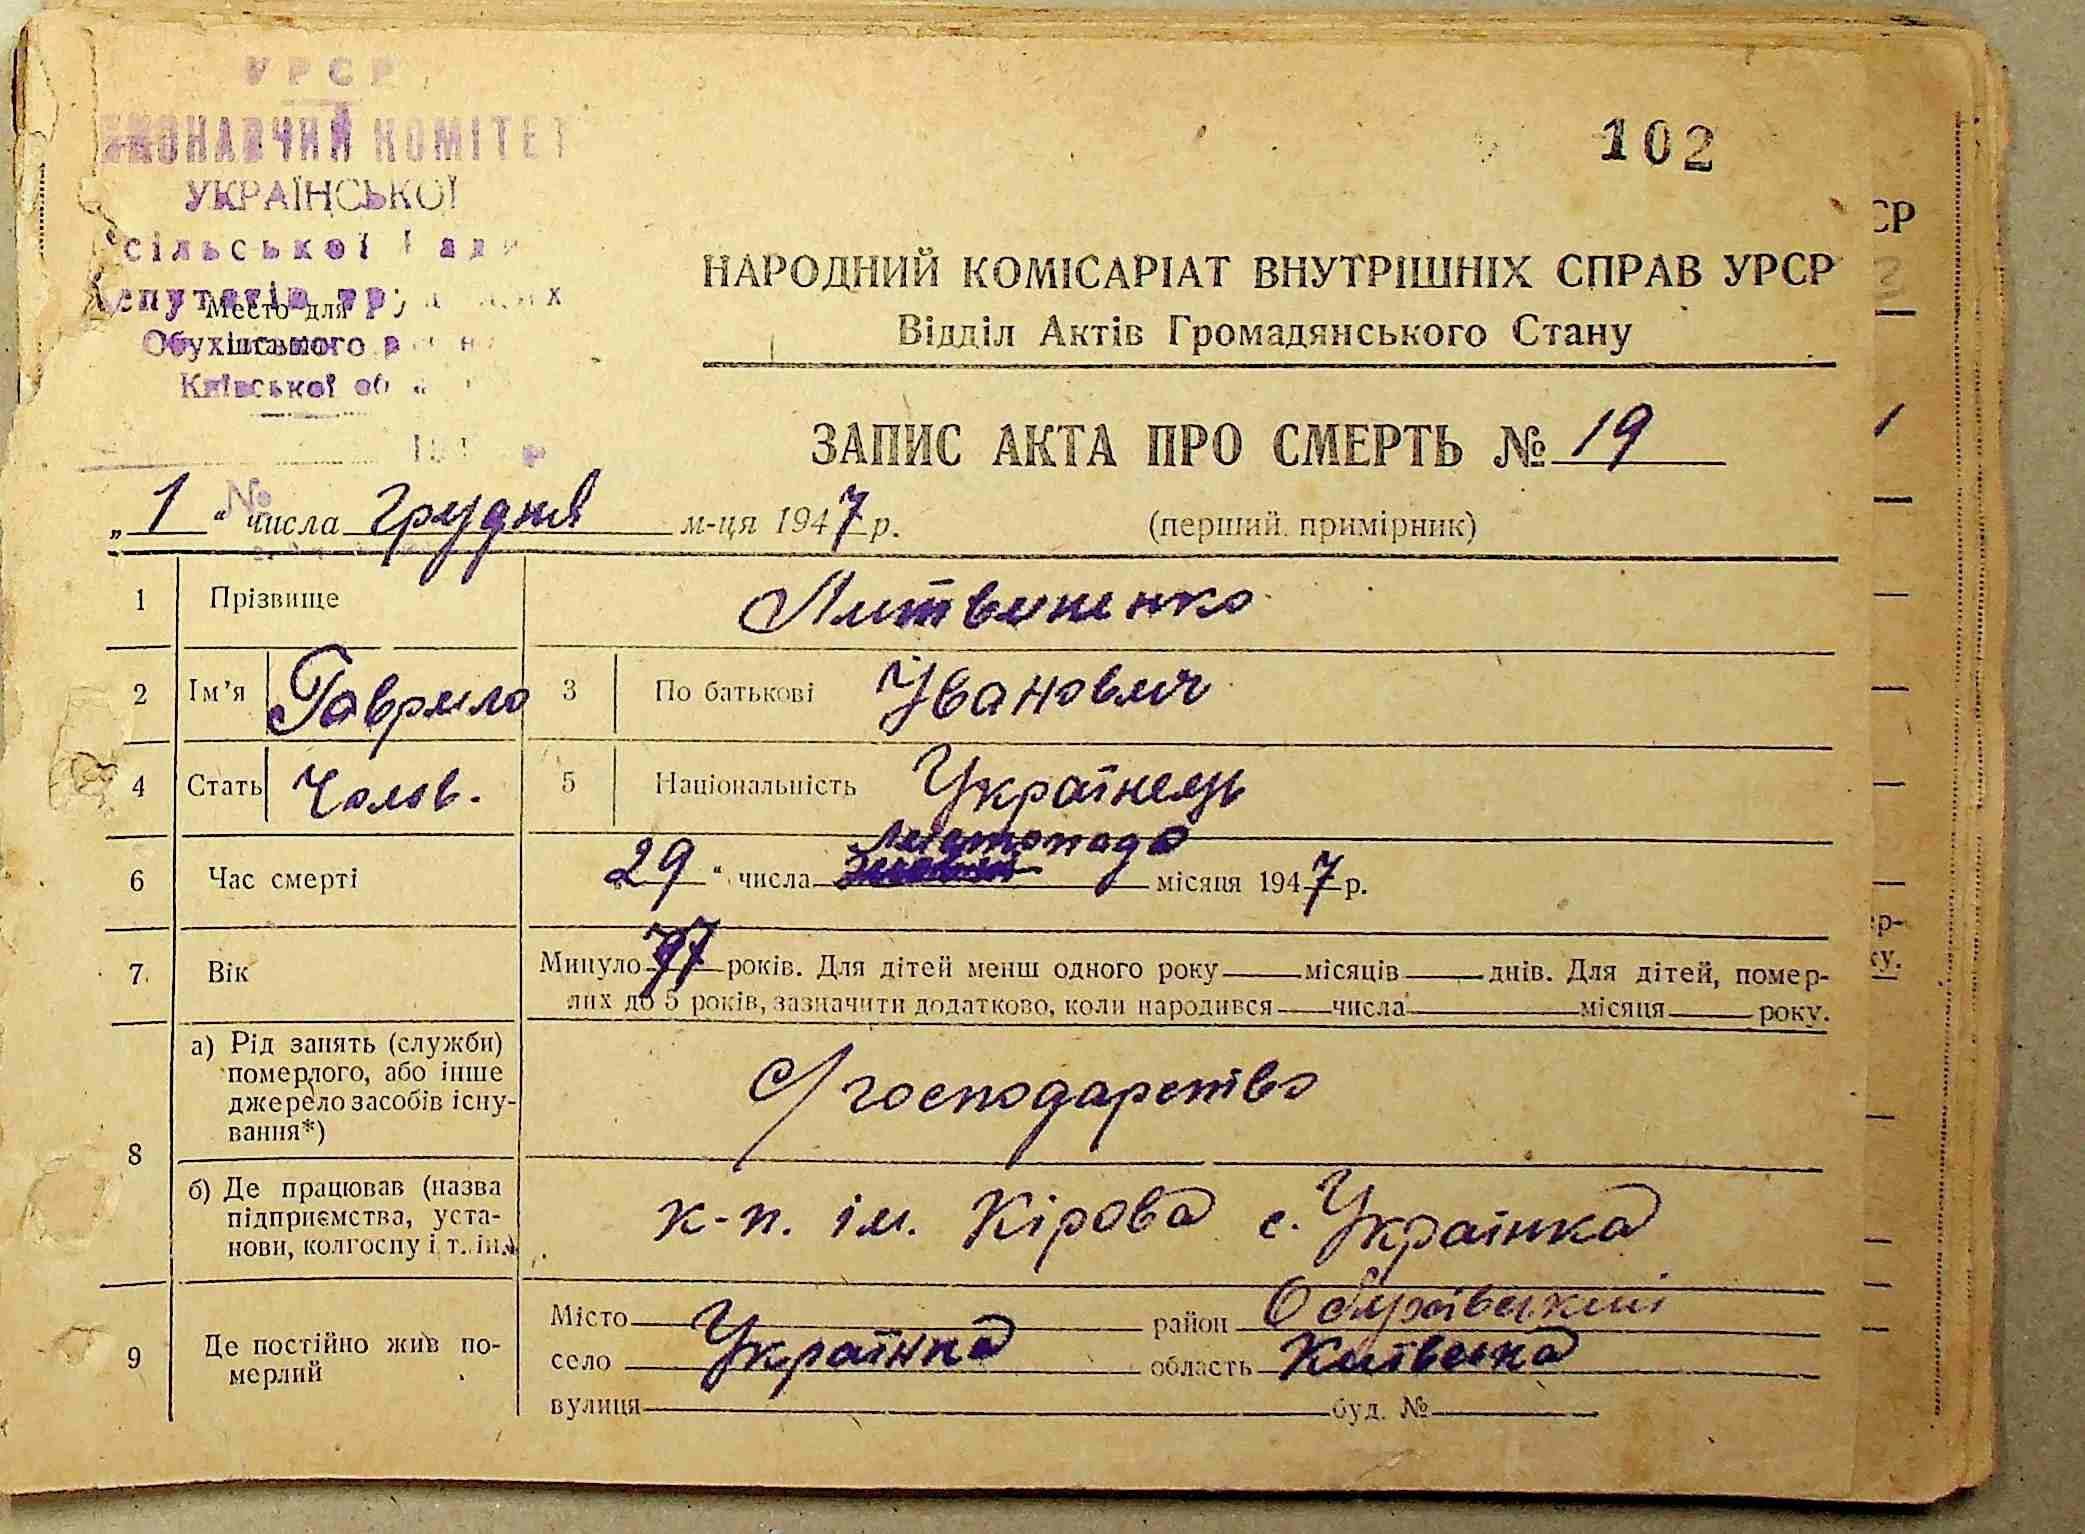 УРСР
ВИКОНАВЧИЙ КОМІТЕТ
УКРАЇНСЬКОЇ
сільської Ради
депутатів трудящих
Место для
Обухівського
Київської
102
НАРОДНИЙ КОМІСАРІАТ ВНУТРІШНІХ СПРАВ УРСР
Відділ Актів Громадянського Стану
ЗАПИС АКТА ПРО СМЕРТЬ № 19
№
„1“ числа грудня м-ця 1947 р. (перший примірник)
1 Прізвище Литвиненко
2 Ім’я Гаврило 3 По батькові Іванович
4 Стать Чолов. 5 Національність Українець
листопада
6 Час смерті 29 “ числа місяця 1947 р.
7. Вік Минуло 77 років. Для дітей менш одного року місяців днів. Для дітей, помер-
лих до 5 років, зазначити додатково, коли народився числа місяця року.
8 а) Рід занять (служби) померлого, або інше джерело засобів існу-вання*) С/господарство
б) Де працював (назва підприємства, уста-нови, колгоспу і т. ін.) к-п. ім. Кірова с. Українка
9 Де постійно жив по-мерлий Місто район Обухівський
село Українка область Київська
вулиця буд. №